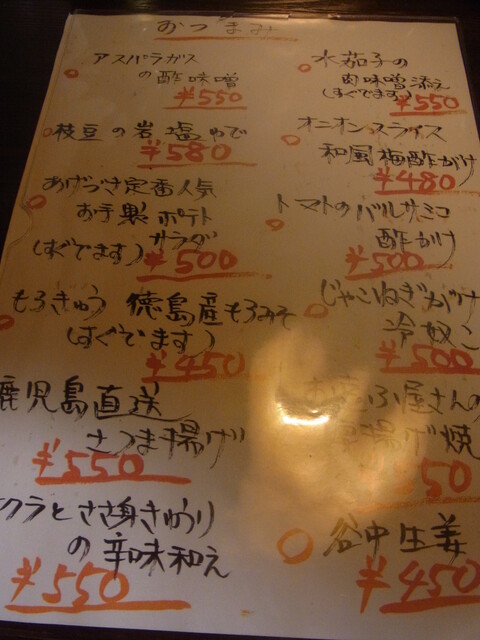 おつまみ
アスパラガス
の酢味噌
¥550
枝豆の岩塩ゆで
¥580
あげづき定番人気
お手製ポテト
サラダ
(すぐでます)
¥500
もろきゅう 徳島産もろみそ
(すぐでます)
¥450
鹿児島直送
さつま揚げ
¥550
オクラとささ身きゅうり
の辛味和え
¥550
水茄子の
肉味噌添え
(すぐでます)
¥550
オニオンスライス
和風梅酢がけ
¥480
トマトのバルサミコ
酢がけ
¥500
じゃこねぎがけ
冷奴こ
¥500
ふ屋さんの
揚げ焼
50
谷中生姜
¥450